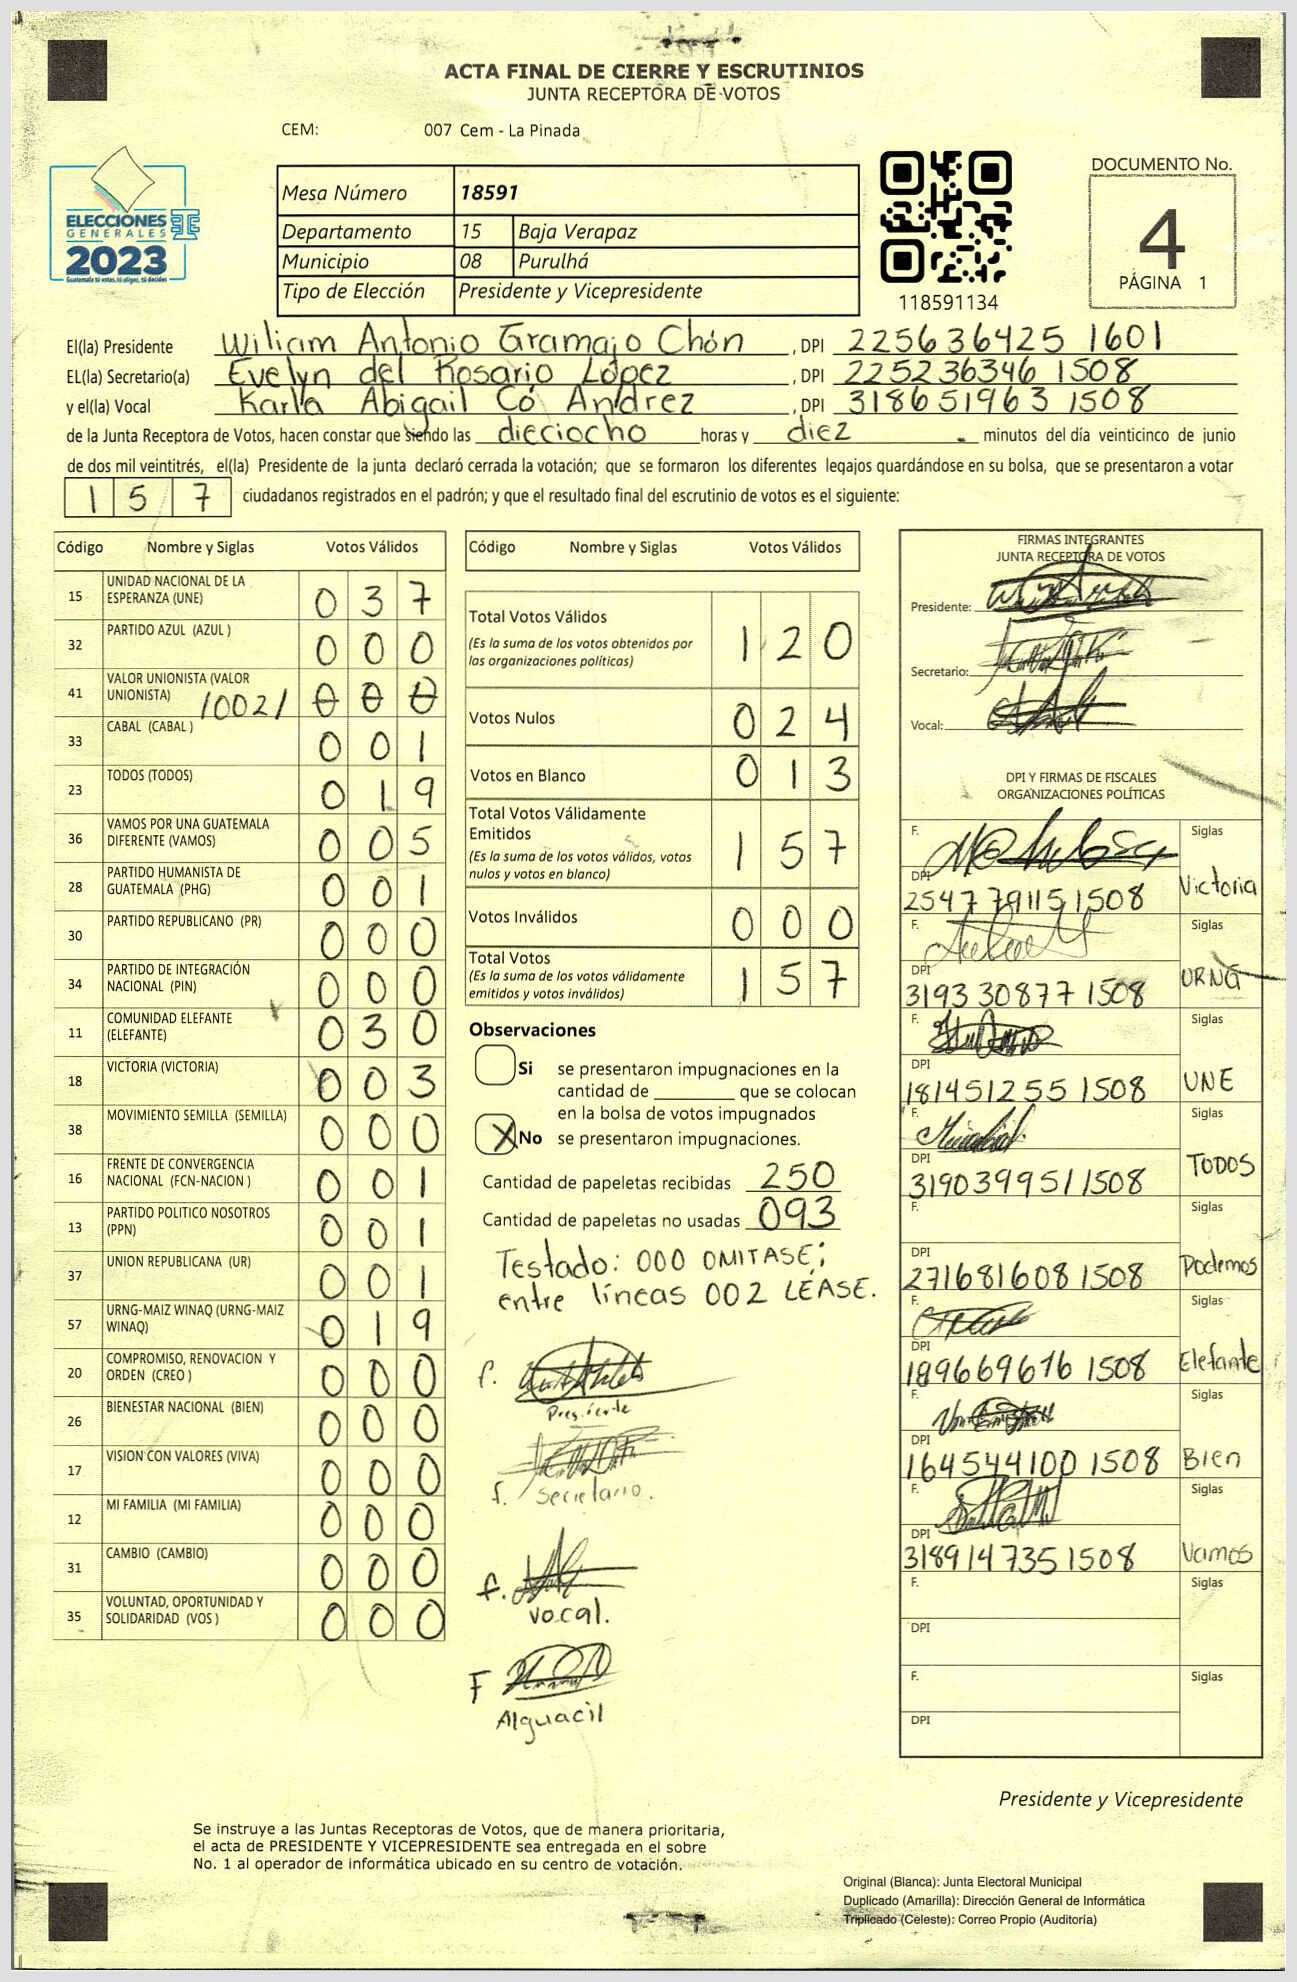 ACTA FINAL DE CIERRE Y ESCRUTINIOS
JUNTA RECEPTORA DE VOTOS
CEM: 007 Cem - La Pinada
ELECCIONES
GENERALES
2023
Guatemala tú votas, tú eliges, tú decides
Mesa Número 18591
Departamento 15 Baja Verapaz
Municipio 08 Purulhá
Tipo de Elección Presidente y Vicepresidente
118591134
DOCUMENTO No.
4
PÁGINA 1
El(la) Presidente Wiliam Antonio Gramajo Chón , DPI 225636425 1601
EL(la) Secretario(a) Evelyn del Rosario López , DPI 225236346 1508
y el(la) Vocal Karla Abigail Có Andrez , DPI 318651963 1508
de la Junta Receptora de Votos, hacen constar que siendo las dieciocho horas y diez minutos del día veinticinco de junio
de dos mil veintitrés, el(la) Presidente de la junta declaró cerrada la votación; que se formaron los diferentes legajos quardándose en su bolsa, que se presentaron a votar
157 ciudadanos registrados en el padrón; y que el resultado final del escrutinio de votos es el siguiente:
Código Nombre y Siglas Votos Válidos
15 UNIDAD NACIONAL DE LA ESPERANZA (UNE) 0 3 7
32 PARTIDO AZUL (AZUL ) 0 0 0
41 VALOR UNIONISTA (VALOR UNIONISTA) /002/ 0 0 0
33 CABAL (CABAL ) 0 0 1
23 TODOS (TODOS) 0 1 9
36 VAMOS POR UNA GUATEMALA DIFERENTE (VAMOS) 0 0 5
28 PARTIDO HUMANISTA DE GUATEMALA (PHG) 0 0 1
30 PARTIDO REPUBLICANO (PR) 0 0 0
34 PARTIDO DE INTEGRACIÓN NACIONAL (PIN) 0 0 0
11 COMUNIDAD ELEFANTE (ELEFANTE) 0 3 0
18 VICTORIA (VICTORIA) 0 0 3
38 MOVIMIENTO SEMILLA (SEMILLA) 0 0 0
16 FRENTE DE CONVERGENCIA NACIONAL (FCN-NACION ) 0 0 1
13 PARTIDO POLITICO NOSOTROS (PPN) 0 0 1
37 UNION REPUBLICANA (UR) 0 0 1
57 URNG-MAIZ WINAQ (URNG-MAIZ WINAQ) 0 1 9
20 COMPROMISO, RENOVACION Y ORDEN (CREO ) 0 0 0
26 BIENESTAR NACIONAL (BIEN) 0 0 0
17 VISION CON VALORES (VIVA) 0 0 0
12 MI FAMILIA (MI FAMILIA) 0 0 0
31 CAMBIO (CAMBIO) 0 0 0
35 VOLUNTAD, OPORTUNIDAD Y SOLIDARIDAD (VOS ) 0 0 0
Código Nombre y Siglas Votos Válidos
Total Votos Válidos 1 2 0
(Es la suma de los votos obtenidos por
las organizaciones políticas)
Votos Nulos 0 2 4
Votos en Blanco 0 1 3
Total Votos Válidamente
Emitidos 1 5 7
(Es la suma de los votos válidos, votos
nulos y votos en blanco)
Votos Inválidos 0 0 0
Total Votos 1 5 7
(Es la suma de los votos válidamente
emitidos y votos inválidos)
Observaciones
Si se presentaron impugnaciones en la
cantidad de ________ que se colocan
en la bolsa de votos impugnados
X No se presentaron impugnaciones.
Cantidad de papeletas recibidas 250
Cantidad de papeletas no usadas 093
Testado: 000 OMITASE;
entre líneas 002 LEASE.
f.
Presidente
f. Secretario.
f.
vocal.
F
Alguacil
FIRMAS INTEGRANTES
JUNTA RECEPTORA DE VOTOS
Presidente:
Secretario:
Vocal:
DPI Y FIRMAS DE FISCALES
ORGANIZACIONES POLÍTICAS
F. Siglas
DPI 2547 79115 1508 Victoria
F. Siglas
DPI 3193 30877 1508 URNG
F. Siglas
DPI 181451255 1508 UNE
F. Siglas
DPI 319039951 1508 TODOS
F. Siglas
DPI 271681608 1508 Podemos
F. Siglas
DPI 189669676 1508 Elefante
F. Siglas
DPI 164544100 1508 Bien
F. Siglas
DPI 318914735 1508 Vamos
F. Siglas
DPI
F. Siglas
DPI
Presidente y Vicepresidente
Se instruye a las Juntas Receptoras de Votos, que de manera prioritaria,
el acta de PRESIDENTE Y VICEPRESIDENTE sea entregada en el sobre
No. 1 al operador de informática ubicado en su centro de votación.
Original (Blanca): Junta Electoral Municipal
Duplicado (Amarilla): Dirección General de Informática
Triplicado (Celeste): Correo Propio (Auditoría)